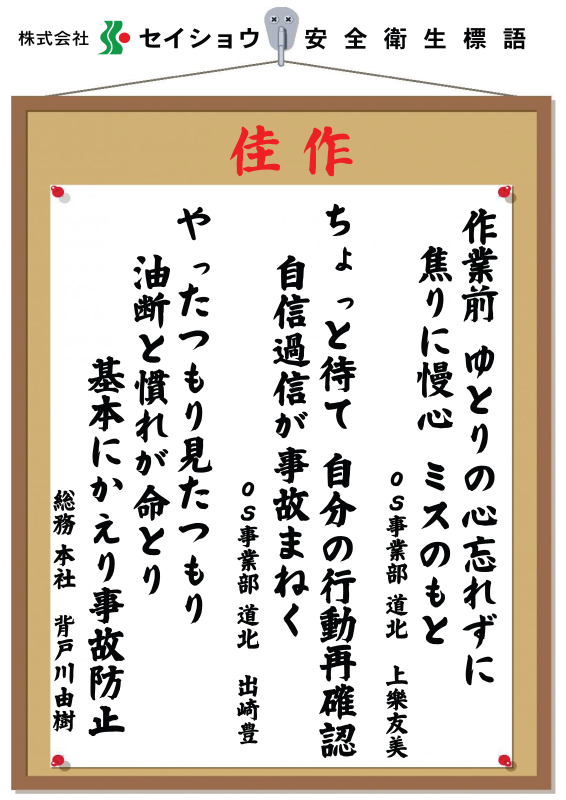 株式会社 セイショウ 安全衛生標語
佳作
作業前 ゆとりの心忘れずに
焦りに慢心 ミスのもと
OS事業部 道北 上樂友美
ちょっと待て 自分の行動再確認
自信過信が事故まねく
OS事業部 道北 出崎豊
やったつもり見たつもり
油断と慣れが命とり
基本にかえり事故防止
総務 本社 背戸川由樹